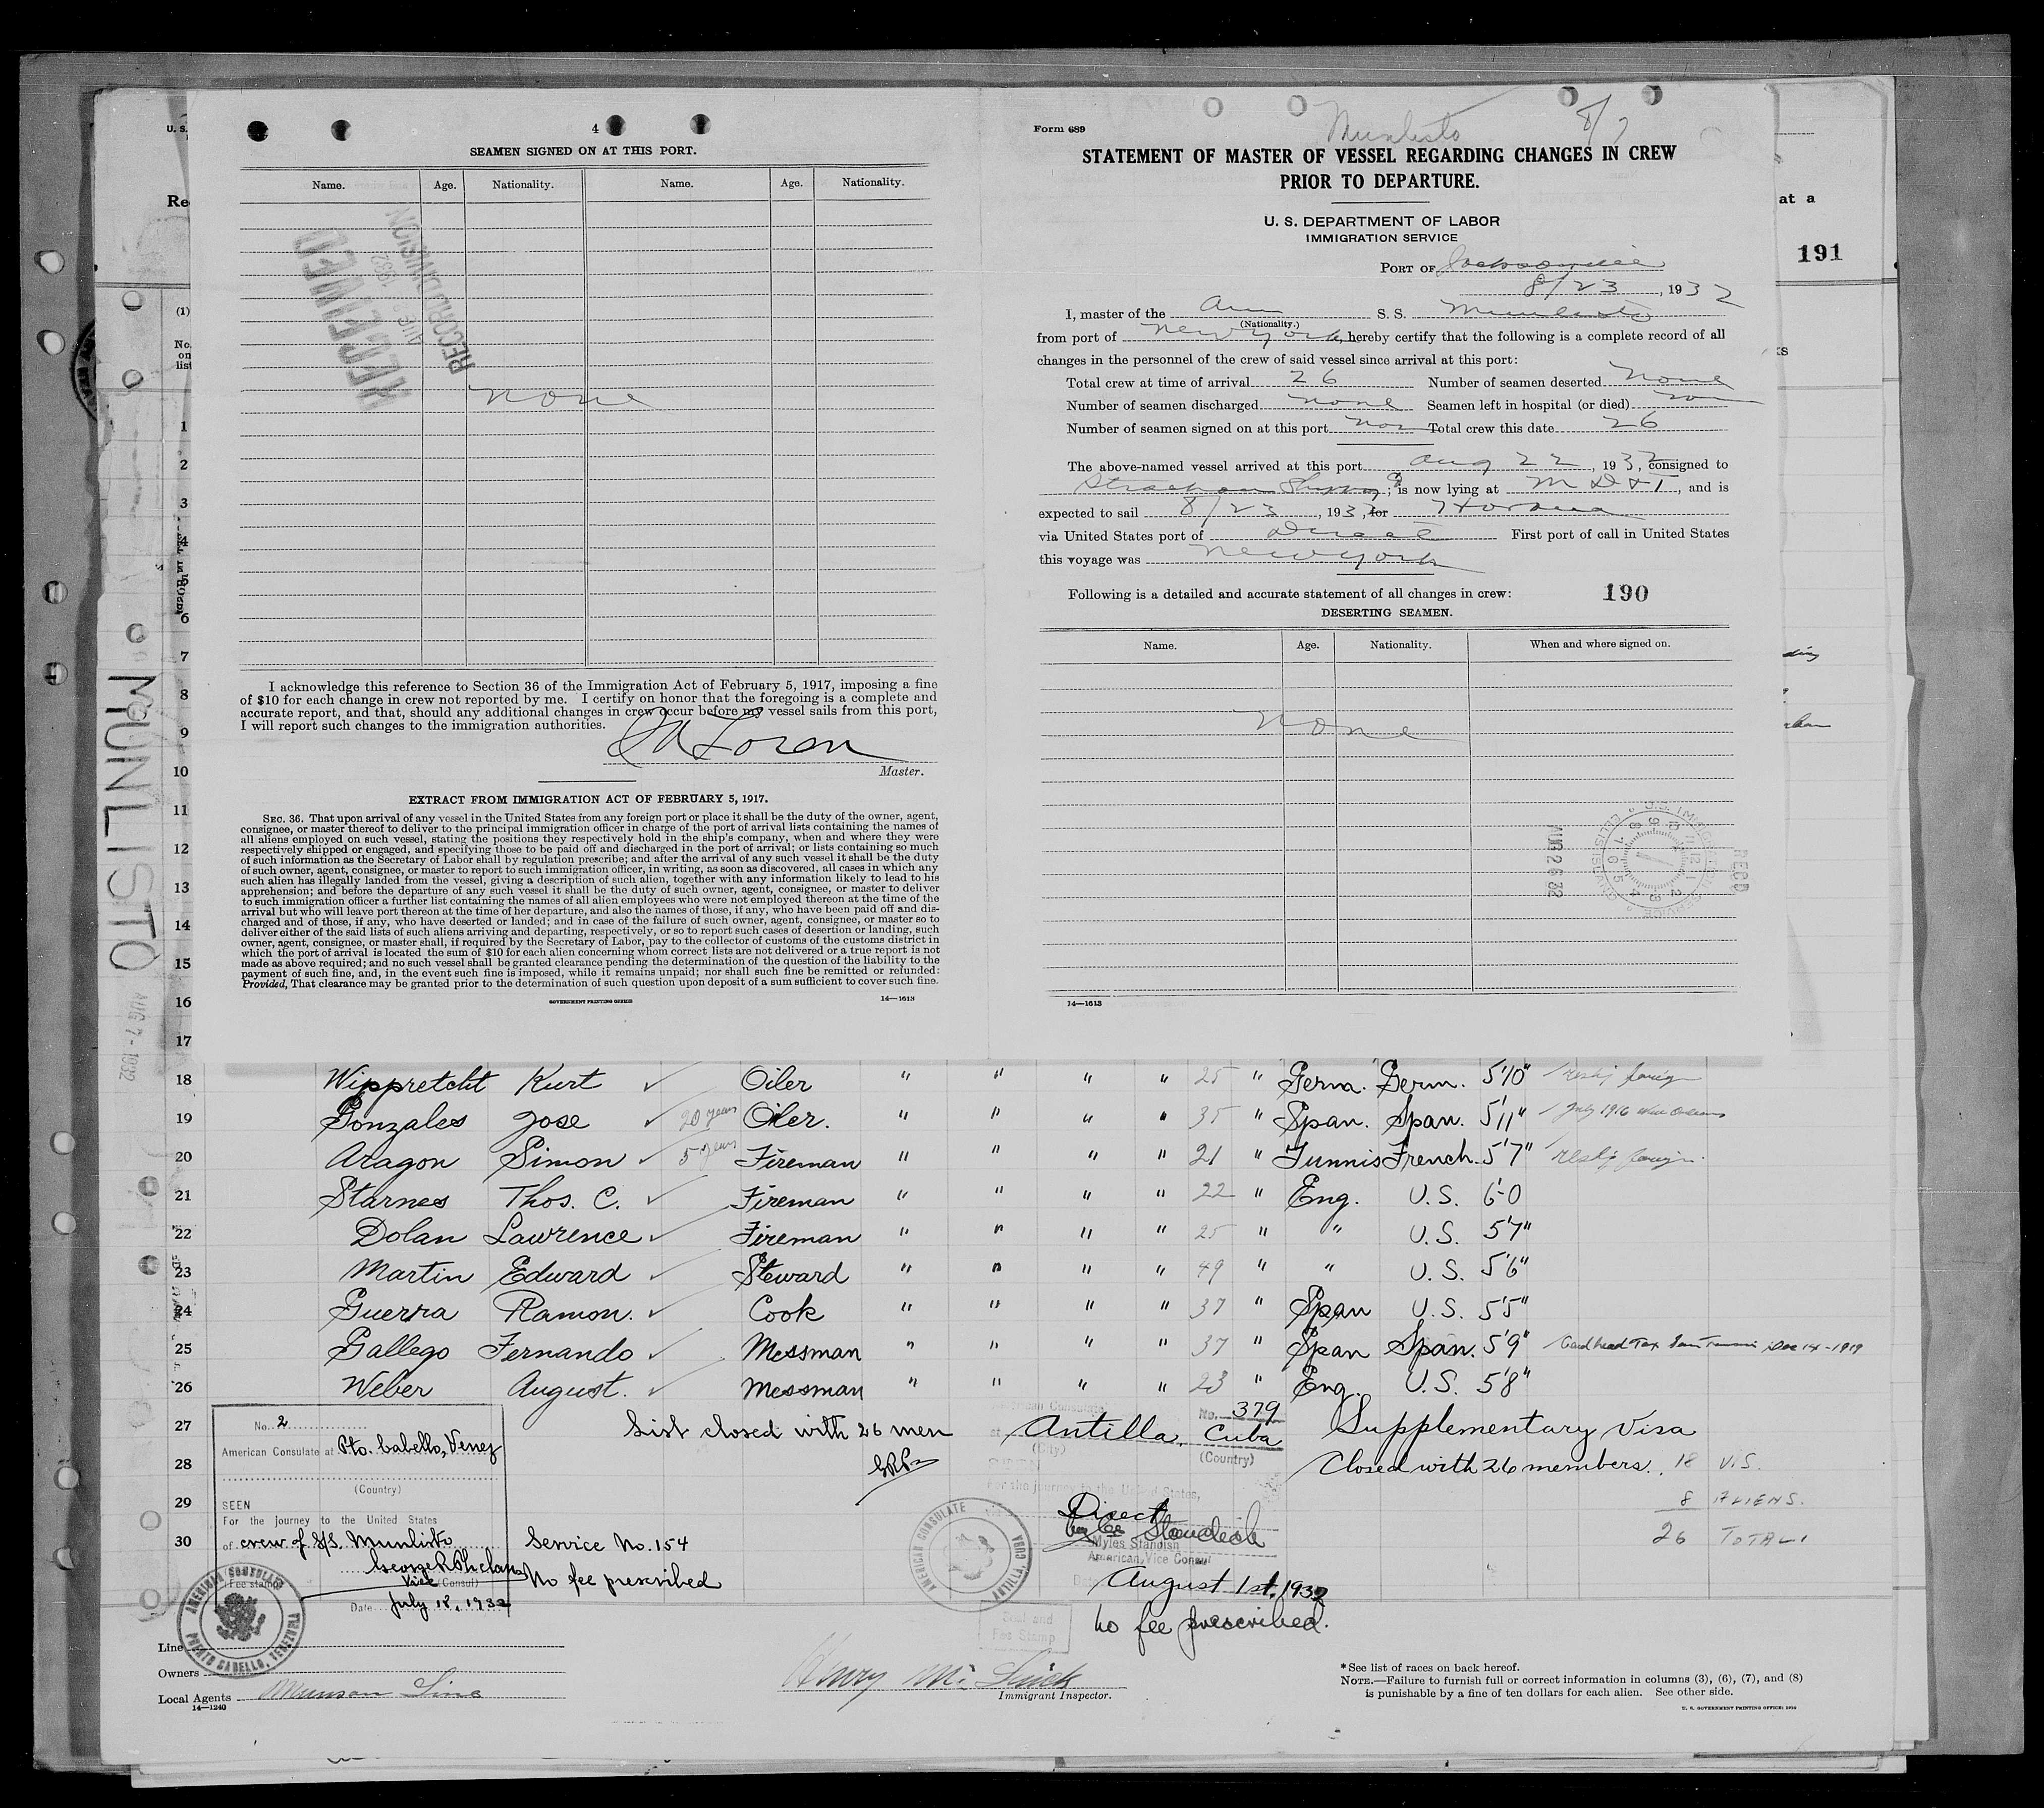 4
SEAMEN SIGNED ON AT THIS PORT.
Name. Age. Nationality. Name. Age. Nationality.
REVIEWED
1932
RECORD DIVISION
none
I acknowledge this reference to Section 36 of the Immigration Act of February 5, 1917, imposing a fine
of $10 for each change in crew not reported by me. I certify on honor that the foregoing is a complete and
accurate report, and that, should any additional changes in crew occur before my vessel sails from this port,
I will report such changes to the immigration authorities.
Master.
EXTRACT FROM IMMIGRATION ACT OF FEBRUARY 5, 1917.
SEC. 36. That upon arrival of any vessel in the United States from any foreign port or place it shall be the duty of the owner, agent,
consignee, or master thereof to deliver to the principal immigration officer in charge of the port of arrival lists containing the names of
all aliens employed on such vessel, stating the positions they respectively hold in the ship's company, when and where they were
respectively shipped or engaged, and specifying those to be paid off and discharged in the port of arrival; or lists containing so much
of such information as the Secretary of Labor shall by regulation prescribe; and after the arrival of any such vessel it shall be the duty
of such owner, agent, consignee, or master to report to such immigration officer, in writing, as soon as discovered, all cases in which any
such alien has illegally landed from the vessel, giving a description of such alien, together with any information likely to lead to his
apprehension; and before the departure of any such vessel it shall be the duty of such owner, agent, consignee, or master to deliver
to such immigration officer a further list containing the names of all alien employees who were not employed thereon at the time of the
arrival but who will leave port thereon at the time of her departure, and also the names of those, if any, who have been paid off and dis-
charged and of those, if any, who have deserted or landed; and in case of the failure of such owner, agent, consignee, or master so to
deliver either of the said lists of such aliens arriving and departing, respectively, or so to report such cases of desertion or landing, such
owner, agent, consignee, or master shall, if required by the Secretary of Labor, pay to the collector of customs of the customs district in
which the port of arrival is located the sum of $10 for each alien concerning whom correct lists are not delivered or a true report is not
made as above required; and no such vessel shall be granted clearance pending the determination of the question of the liability to the
payment of such fine, and, in the event such fine is imposed, while it remains unpaid; nor shall such fine be remitted or refunded:
Provided, That clearance may be granted prior to the determination of such question upon deposit of a sum sufficient to cover such fine.
GOVERNMENT PRINTING OFFICE 14—1613
Form 689
Munlisto
STATEMENT OF MASTER OF VESSEL REGARDING CHANGES IN CREW
PRIOR TO DEPARTURE.
U. S. DEPARTMENT OF LABOR
IMMIGRATION SERVICE
PORT OF Jacksonville
8/23, 1932
I, master of the Am S. S. Munlisto
(Nationality.)
from port of New York, hereby certify that the following is a complete record of all
changes in the personnel of the crew of said vessel since arrival at this port:
Total crew at time of arrival 26 Number of seamen deserted none
Number of seamen discharged none Seamen left in hospital (or died) non
Number of seamen signed on at this port non Total crew this date 26
The above-named vessel arrived at this port Aug 22, 1932, consigned to
Strachan Shipping; is now lying at M D & T, and is
expected to sail 8/23, 1932, for Havana
via United States port of Direct First port of call in United States
this voyage was New York
Following is a detailed and accurate statement of all changes in crew: 190
DESERTING SEAMEN.
Name. Age. Nationality. When and where signed on.
none
AUG 26 32
RECD
14—1613
U. S.
Re
at a
191
(1)
No.
on
list
MUNLISTO
AUG 7 - 1932
1
2
3
4
5
6
7
8
9
10
11
12
13
14
15
16
17
18 Wippretcht Kurt ✓ Oiler " " " " 25 " Germ. Germ. 5'10" reship foreign
19 Gonzales Jose ✓ 20 years Oiler. " " " " 35 " Span. Span. 5'11" July 1916 New Orleans
20 Aragon Simon ✓ 5 years Fireman " " " " 21 " Tunnis French. 5'7" reship foreign
21 Starnes Thos. C. ✓ Fireman " " " " 22 " Eng. U.S. 6-0
22 Dolan Lawrence ✓ Fireman " " " " 25 " " U.S. 5'7"
23 Martin Edward ✓ Steward " " " " 49 " " U.S. 5'6"
24 Guerra Ramon. ✓ Cook " " " " 37 " Span U.S. 5'5"
25 Gallego Fernando ✓ Messman " " " " 37 " Span Span. 5'9" head Tax Dec 14-1919
26 Weber August. ✓ Messman " " " " 23 " Eng. U.S. 5'8"
27
28
29
30
No. 2
American Consulate at Pto. Cabello, Venez
(Country)
SEEN
For the journey to the United States
of crew of S/S. Munlisto
George R Phelan
Vice (Consul)
(Fee stamp)
Date July 18, 1932
AMERICAN CONSULATE PUERTO CABELLO, VENEZUELA
List closed with 26 men
GRP
Service No. 154
No fee prescribed
American Consulate No. 379
at Antilla, Cuba
(City) (Country)
For the journey to the United States,
Direct
Myles Standish
Myles Standish
American Vice Consul
Date August 1st, 1932
no fee prescribed.
AMERICAN CONSULATE ANTILLA, CUBA
Seal and
Fee Stamp
Supplementary Visa
Closed with 26 members.
18 U.S.
8 ALIENS.
26 TOTAL
Line
Owners
Local Agents Munson Line
14—1240
Immigrant Inspector.
*See list of races on back hereof.
NOTE.—Failure to furnish full or correct information in columns (3), (6), (7), and (8)
is punishable by a fine of ten dollars for each alien. See other side.
U. S. GOVERNMENT PRINTING OFFICE: 1929